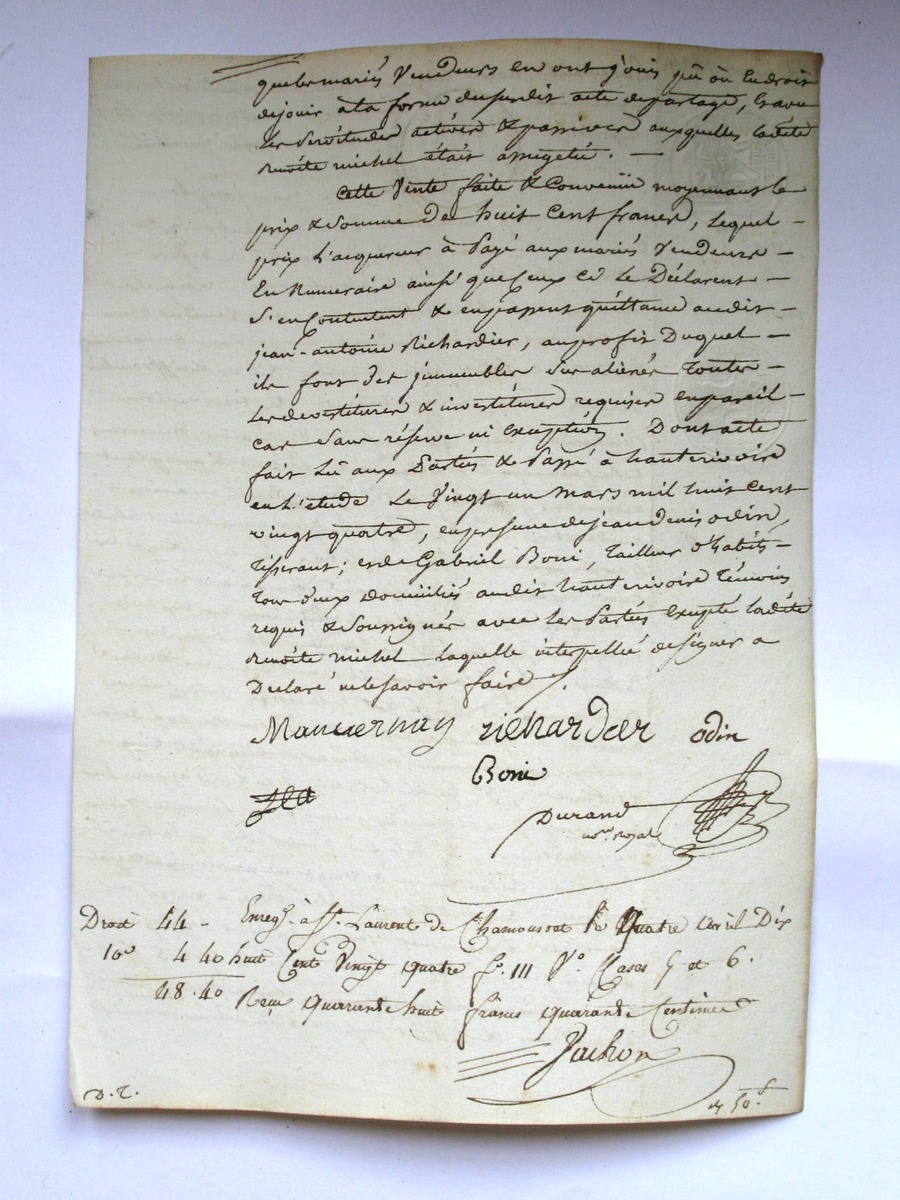 que les mariés Vendeurs en ont jouis pû où Eu droit
de jouir à la forme du susdit acte de partage, Et avec
Les Servitudes actives & passives auxquelles ladite
Benoite michel était assujetié. —
Cette Vente faite & Convenüe moyennant le
prix & Somme De huit Cent francs, Lequel -
prix L'acquereur à Payé aux mariés Vendeurs -
En Numeraire ainsi que Ceux Ci Le Déclarent -
S'en Contentent & en passent quittance audit -
jean-antoine Richardier, au profit Duquel -
ils font des jmmeubles Sus aliénés Toutes -
Les devestitures & investitures requises en pareil -
cas Sans réserve ni Exception. Dont acte
fait Lû aux Partiés & Passé à hauterivoire
en L'étude Le Vingt un Mars mil huit cent
vingt quatre, en présence de jean Denis odin,
Tisserant; et de Gabriel Boni, Tailleur d'habits -
Tous deux Domiciliés audit hauterivoire Témoins
requis & Soussignés avec Les Partiés Excepté Ladite
Benoite michel Laquelle interpellée de Signer a
Déclaré ne le Savoir faire.
richardier odin
Boni
Durand
nore royal
Droit 44 - Enregé. à St. Laurent de Chamousset le Quatre avril Dix
10e 4 40 huit Cent Vingt quatre f° 111 V° Cases 5 et 6.
48.40 Reçu quarante huit francs quarante Centimes
D. T.
50.